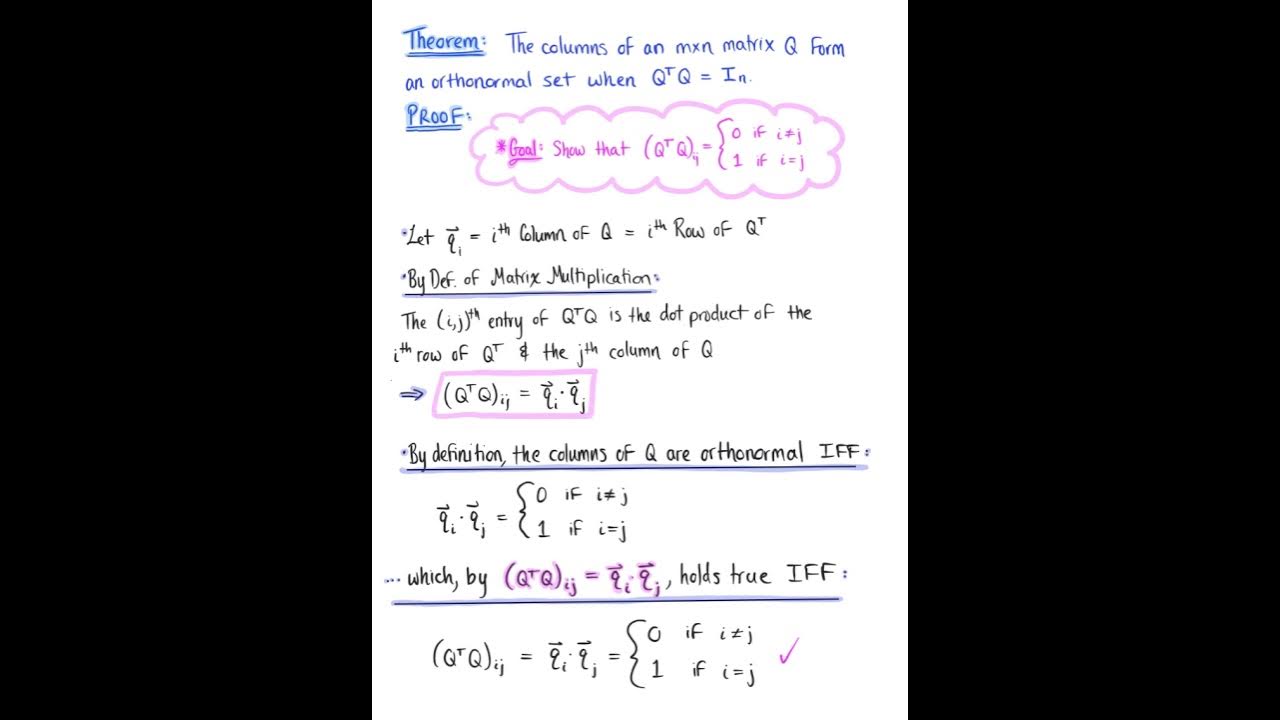 Theorem: The columns of an m×n matrix Q form
an orthonormal set when QᵀQ = Iₙ.
PROOF:
*Goal: Show that (QᵀQ)ᵢⱼ = {0 if i≠j
1 if i=j
•Let q⃗ᵢ = iᵗʰ Column of Q = iᵗʰ Row of Qᵀ
•By Def. of Matrix Multiplication:
The (i,j)ᵗʰ entry of QᵀQ is the dot product of the
iᵗʰ row of Qᵀ & the jᵗʰ column of Q
⇒ (QᵀQ)ᵢⱼ = q⃗ᵢ·q⃗ⱼ
•By definition, the columns of Q are orthonormal IFF:
q⃗ᵢ·q⃗ⱼ = {0 if i≠j
1 if i=j
... which, by (QᵀQ)ᵢⱼ = q⃗ᵢ·q⃗ⱼ, holds true IFF:
(QᵀQ)ᵢⱼ = q⃗ᵢ·q⃗ⱼ = {0 if i≠j
1 if i=j ✓